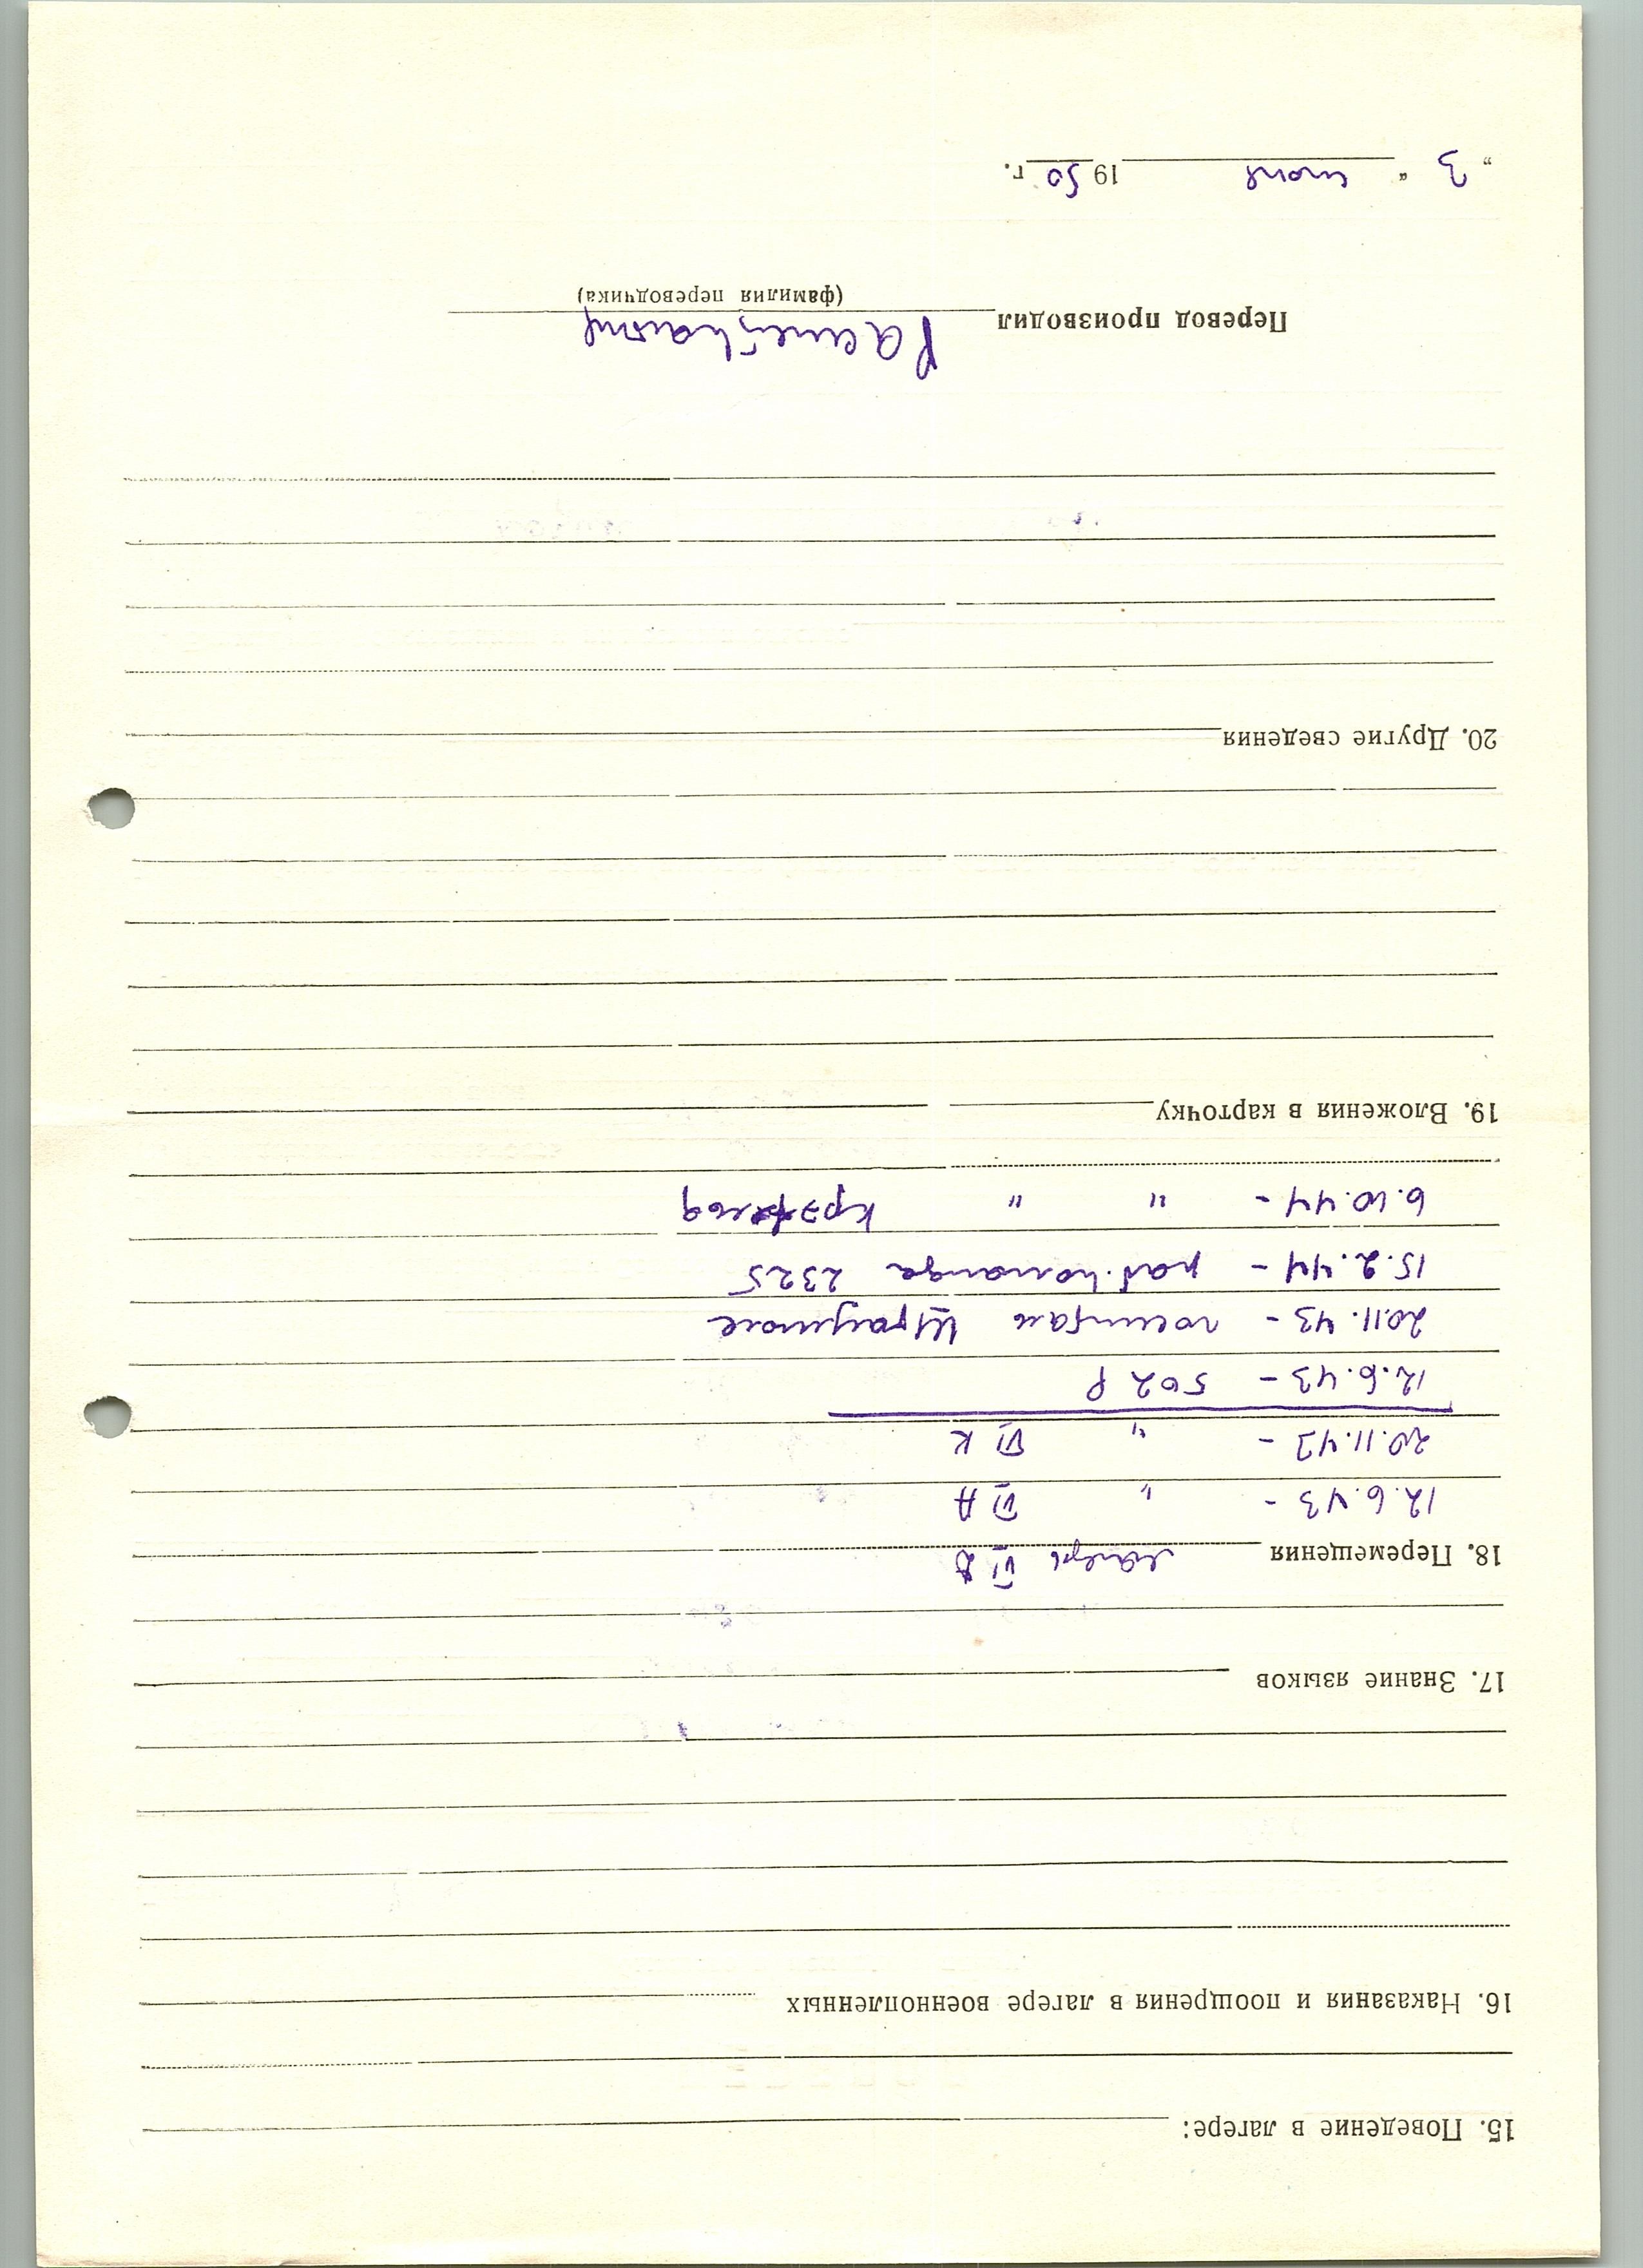 15. Поведение в лагере:
16. Наказания и поощрения в лагере военнопленных
17. Знание языков
18. Перемещения лагерь VI
12.6.43 - " VI А
20.11.43 - " VI К
12.6.43 - 502 Р
20.11.43 - госпитал
15.2.44 - раб. команда 2325
6.10.44 - " " Крэфельд
19. Вложения в карточку
20. Другие сведения
Перевод производил
(фамилия переводчика)
„ 3 “ 19 50 г.